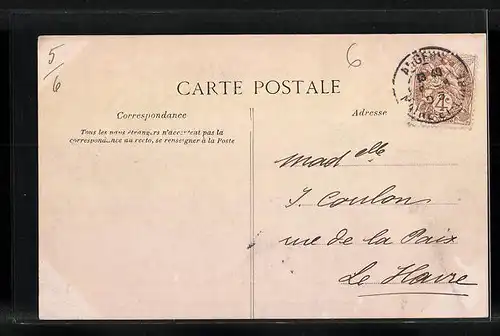 5/6
6
CARTE POSTALE
Correspondance
Adresse
Tous les pays étrangers n'acceptent pas la
correspondance au recto, se renseigner à la Poste
Mad elle
J. Coulon
rue de la Paix
Le Havre